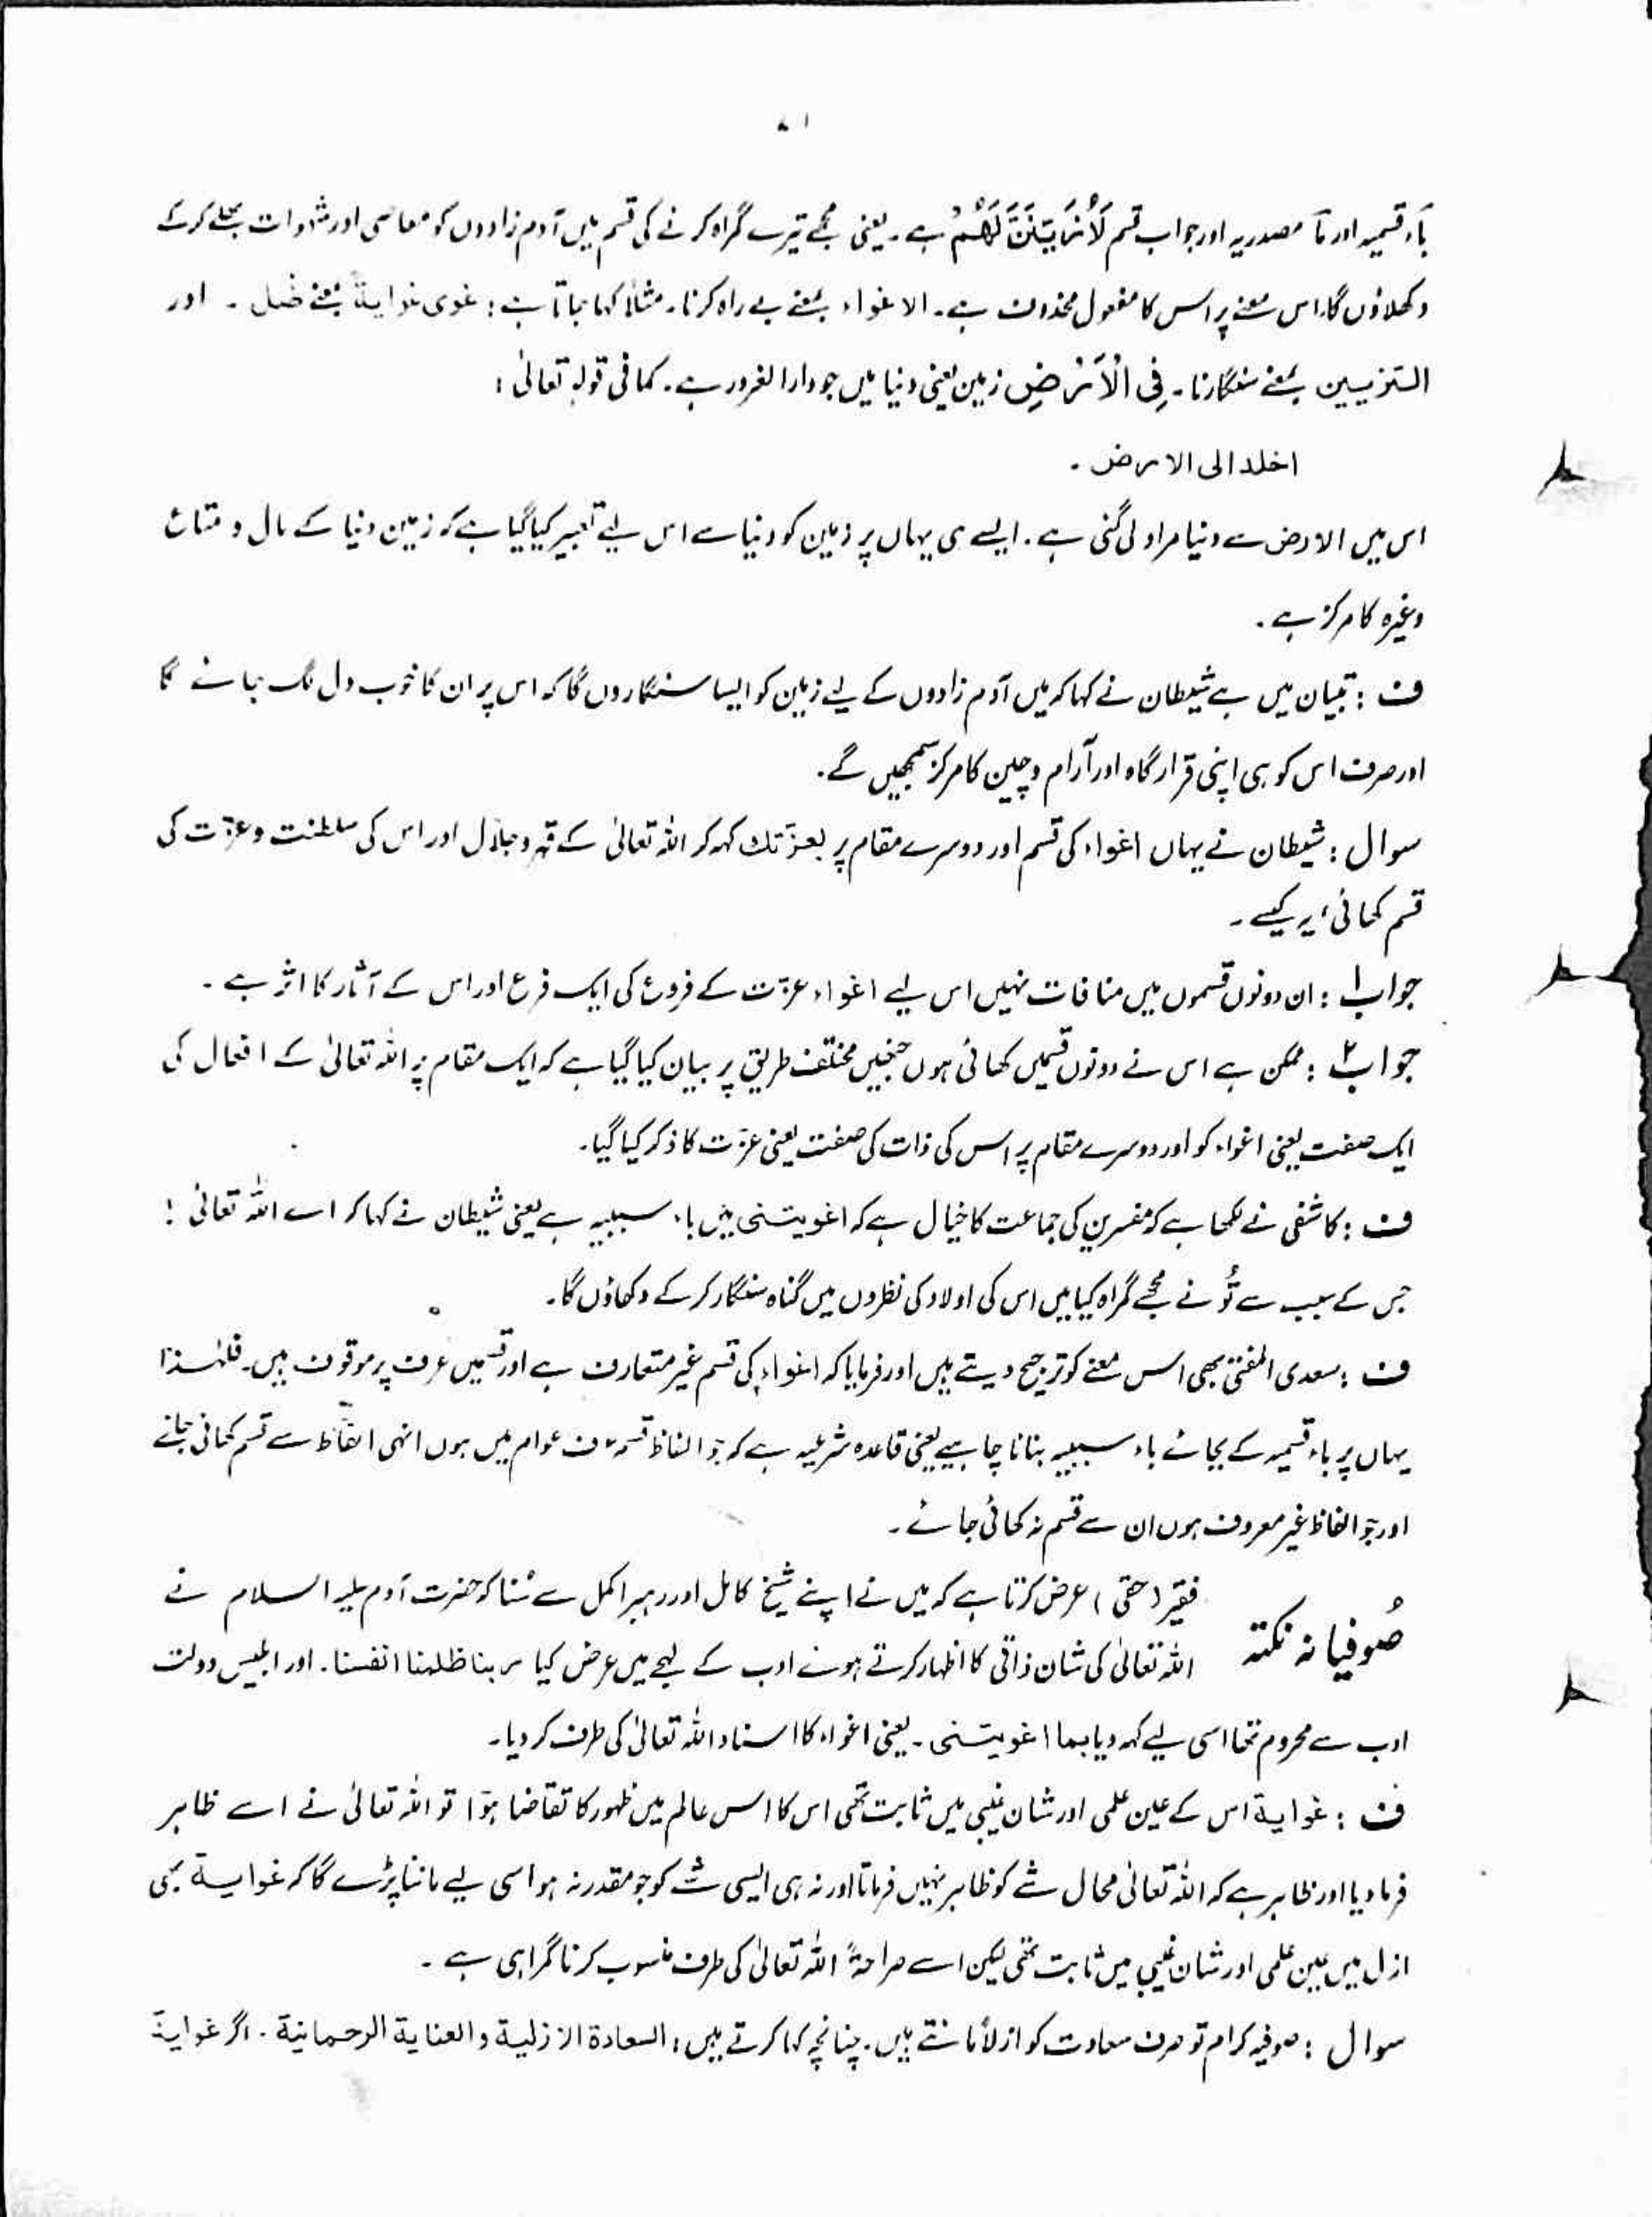 ۷۱
باء قسمیہ اور ما مصدریہ اور جواب قسم لَأُزَيِّنَنَّ لَهُمْ ہے۔ یعنی مجھے تیرے گمراہ کرنے کی قسم میں آدم زادوں کو معاصی اور شہوات بھلے کرکے
دکھلاؤں گا، اس معنے پر اس کا مفعول محذوف ہے۔ الاغواء بمعنے بے راہ کرنا۔ مثلاً کہا جاتا ہے : غوی غوایۃً بمعنے ضل ۔ اور
التزیین بمعنے سنگارنا۔ فِی الْاَرْضِ زمین یعنی دنیا میں جو دارالغرور ہے۔ کما فی قولہ تعالیٰ :
اخلد الی الارض ۔
اس میں الارض سے دنیا مراد لی گئی ہے۔ ایسے ہی یہاں پر زمین کو دنیا سے اس لیے تعبیر کیا گیا ہے کہ زمین دنیا کے مال و متاع
وغیرہ کا مرکز ہے۔
ف : تبیان میں ہے شیطان نے کہا کہ میں آدم زادوں کے لیے زمین کو ایسا سنگاروں گا کہ اس پر ان کا خوب دل لگ جائے گا
اور صرف اس کو ہی اپنی قرار گاہ اور آرام و چین کا مرکز سمجھیں گے۔
سوال : شیطان نے یہاں اغواء کی قسم اور دوسرے مقام پر بعزّتک کہہ کر اللہ تعالیٰ کے قہر و جلال اور اس کی سلطنت و عزّت کی
قسم کھائی، یہ کیسے ۔
جواب ۱ : ان دونوں قسموں میں منافات نہیں اس لیے اغواء عزّت کے فروع کی ایک فرع اور اس کے آثار کا اثر ہے ۔
جواب ۲ : ممکن ہے اس نے دونوں قسمیں کھائی ہوں جنہیں مختلف طریق پر بیان کیا گیا ہے کہ ایک مقام پر اللہ تعالیٰ کے افعال کی
ایک صفت یعنی اغواء کو اور دوسرے مقام پر اس کی ذات کی صفت یعنی عزّت کا ذکر کیا گیا۔
ف : کاشفی نے لکھا ہے کہ مفسرین کی جماعت کا خیال ہے کہ اغویتنی میں باء سببیہ ہے یعنی شیطان نے کہا کہ اے اللہ تعالیٰ !
جس کے سبب سے تُو نے مجھے گمراہ کیا میں اس کی اولاد کی نظروں میں گناہ سنگار کرکے دکھاؤں گا۔
ف : سعدی المفتی بھی اسی معنے کو ترجیح دیتے ہیں اور فرمایا کہ اغواء کی قسم غیر متعارف ہے اور قسمیں عرف پر موقوف ہیں۔ فلہٰذا
یہاں پر باء قسمیہ کے بجائے باء سببیہ بنانا چاہیے یعنی قاعدہ شرعیہ ہے کہ جو الفاظ قسم عرف عوام میں ہوں انہی الفاظ سے قسم کھائی جائے
اور جو الفاظ غیر معروف ہوں ان سے قسم نہ کھائی جائے ۔
صُوفیانہ نکتہ
فقیر (حقی) عرض کرتا ہے کہ میں نے اپنے شیخ کامل اور رہبر اکمل سے سُنا کہ حضرت آدم علیہ السلام نے
اللہ تعالیٰ کی شان ذاتی کا اظہار کرتے ہوئے ادب کے لہجے میں عرض کیا ربنا ظلمنا انفسنا۔ اور ابلیس دولت
ادب سے محروم تھا اسی لیے کہہ دیا بما اغویتنی ۔ یعنی اغواء کا اسناد اللہ تعالیٰ کی طرف کر دیا۔
ف : غوایۃ اس کے عین علمی اور شان غیبی میں ثابت تھی اس کا اس عالم میں ظہور کا تقاضا ہوا تو اللہ تعالیٰ نے اسے ظاہر
فرما دیا اور ظاہر ہے کہ اللہ تعالیٰ محال شے کو ظاہر نہیں فرماتا اور نہ ہی ایسی شے کو جو مقدر نہ ہو اسی لیے ماننا پڑے گا کہ غوایۃ بھی
ازل میں عین علمی اور شان غیبی میں ثابت تھی لیکن اسے صراحۃً اللہ تعالیٰ کی طرف منسوب کرنا گمراہی ہے ۔
سوال : صوفیہ کرام تو صرف سعادت کو ازلاً مانتے ہیں۔ چنانچہ کہا کرتے ہیں : السعادۃ الازلیۃ و العنایۃ الرحمانیۃ ۔ اگر غوایۃ